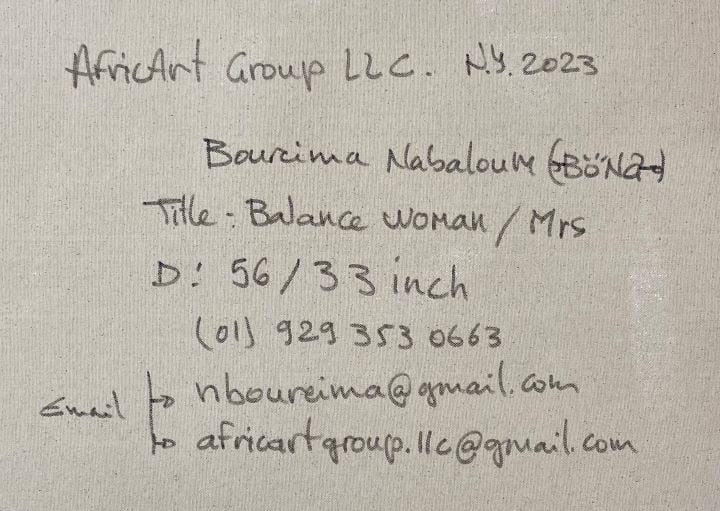 AfricArt Group LLC. N.Y. 2023
Boureima Nabaloum (BöNa)
Title: Balance woman / Mrs
D: 56/33 inch
(01) 929 353 0663
Email → nboureima@gmail.com
→ africartgroup.llc@gmail.com